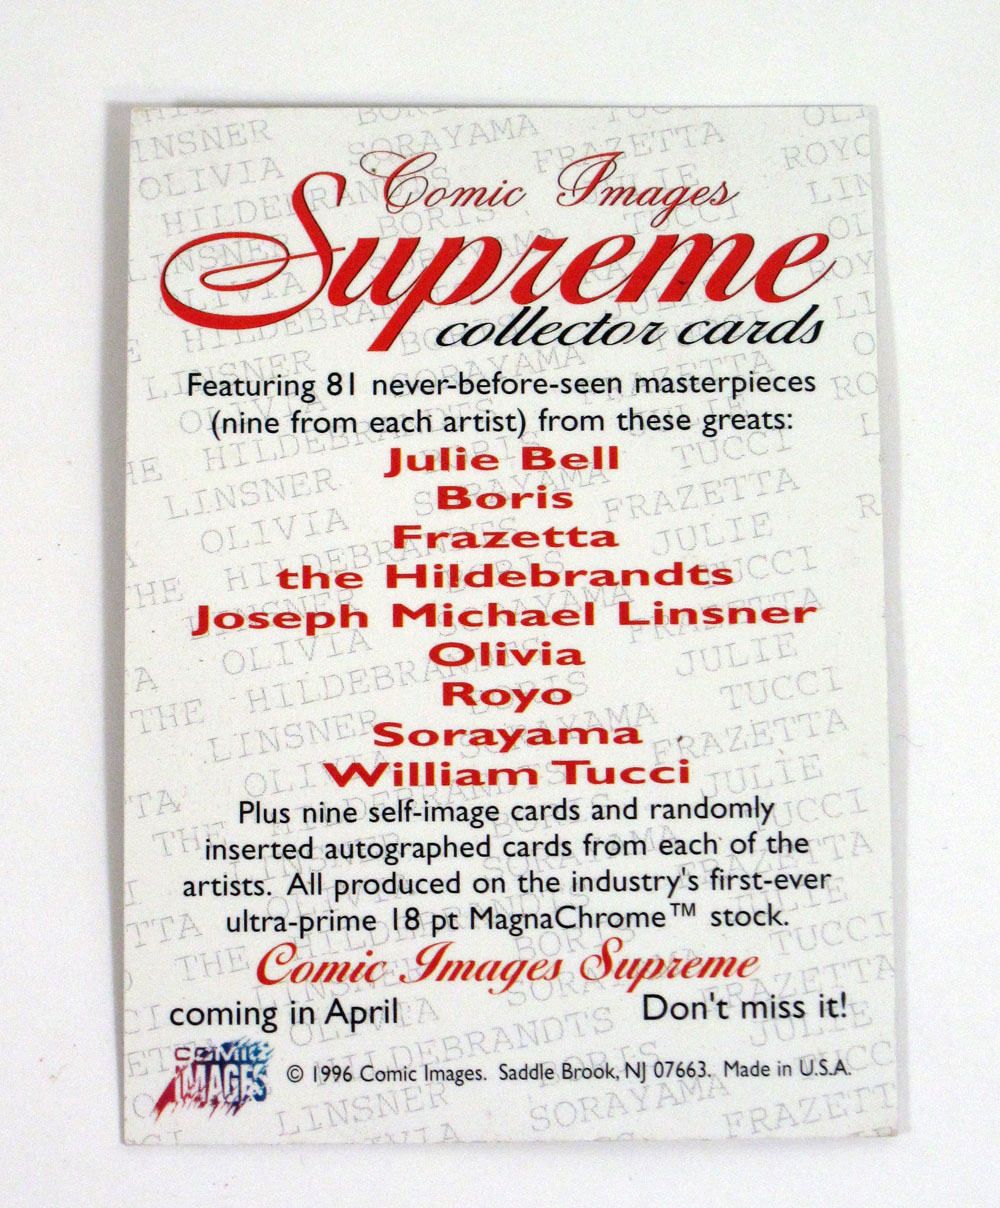 Comic Images
Supreme
collector cards
Featuring 81 never-before-seen masterpieces
(nine from each artist) from these greats:
Julie Bell
Boris
Frazetta
the Hildebrandts
Joseph Michael Linsner
Olivia
Royo
Sorayama
William Tucci
Plus nine self-image cards and randomly
inserted autographed cards from each of the
artists. All produced on the industry's first-ever
ultra-prime 18 pt MagnaChrome™ stock.
Comic Images Supreme
coming in April Don't miss it!
COMIC
IMAGES
© 1996 Comic Images. Saddle Brook, NJ 07663. Made in U.S.A.